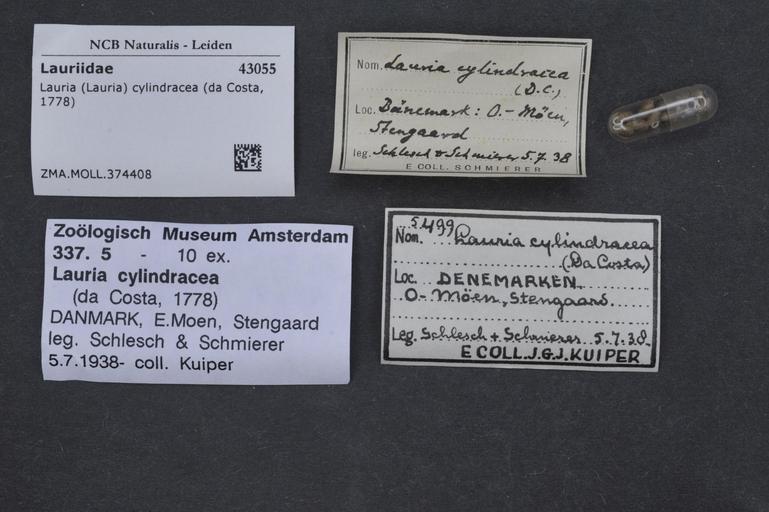 NCB Naturalis - Leiden
Lauriidae 43055
Lauria (Lauria) cylindracea (da Costa,
1778)
ZMA.MOLL.374408
Nom. Lauria cylindracea
(D.C.)
Loc. Dänemark: O.- Möen,
Stengaard
leg. Schlesch & Schmierer 5.7.38
E COLL. SCHMIERER
Zoölogisch Museum Amsterdam
337. 5 - 10 ex.
Lauria cylindracea
(da Costa, 1778)
DANMARK, E.Moen, Stengaard
leg. Schlesch & Schmierer
5.7.1938- coll. Kuiper
5499
Nom. Lauria cylindracea
(Da Costa)
Loc. DENEMARKEN.
O.- Möen, Stengaard.
Leg. Schlesch + Schmierer 5.7.38.
E COLL. J.G.J. KUIPER